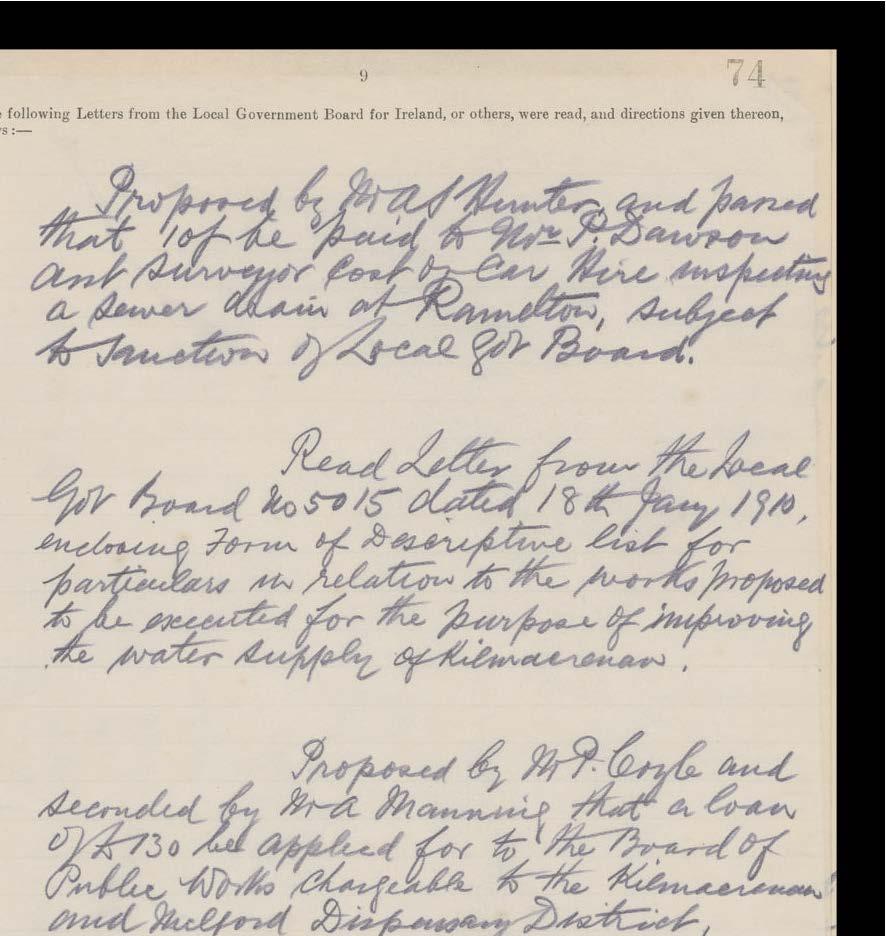 9
74
following Letters from the Local Government Board for Ireland, or others, were read, and directions given thereon,
s :—
Proposed by Mr A S Hunter, and passed
that 10/ be paid to Mr P. Dawson
asst surveyor cost of Car Hire inspecting
a sewer drain at Ramelton, subject
to sanction of Local Gov Board.
Read Letter from the Local
Gov Board No 5015 dated 18th Jany 1910,
enclosing Form of Descriptive list for
particulars in relation to the works proposed
to be executed for the purpose of improving
the water supply of Kilmacrenan.
Proposed by Mr P. Coyle and
seconded by Mr A Manning that a loan
of £130 be applied for to the Board of
Public Works chargeable to the Kilmacrenan
and Milford Dispensary District,